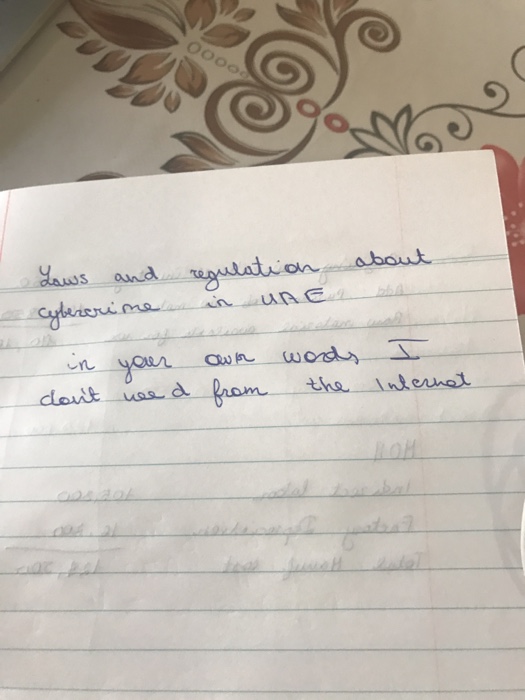 Laws and regulation about
cybercrime in UAE
in your own words, I
don't need from the Internet